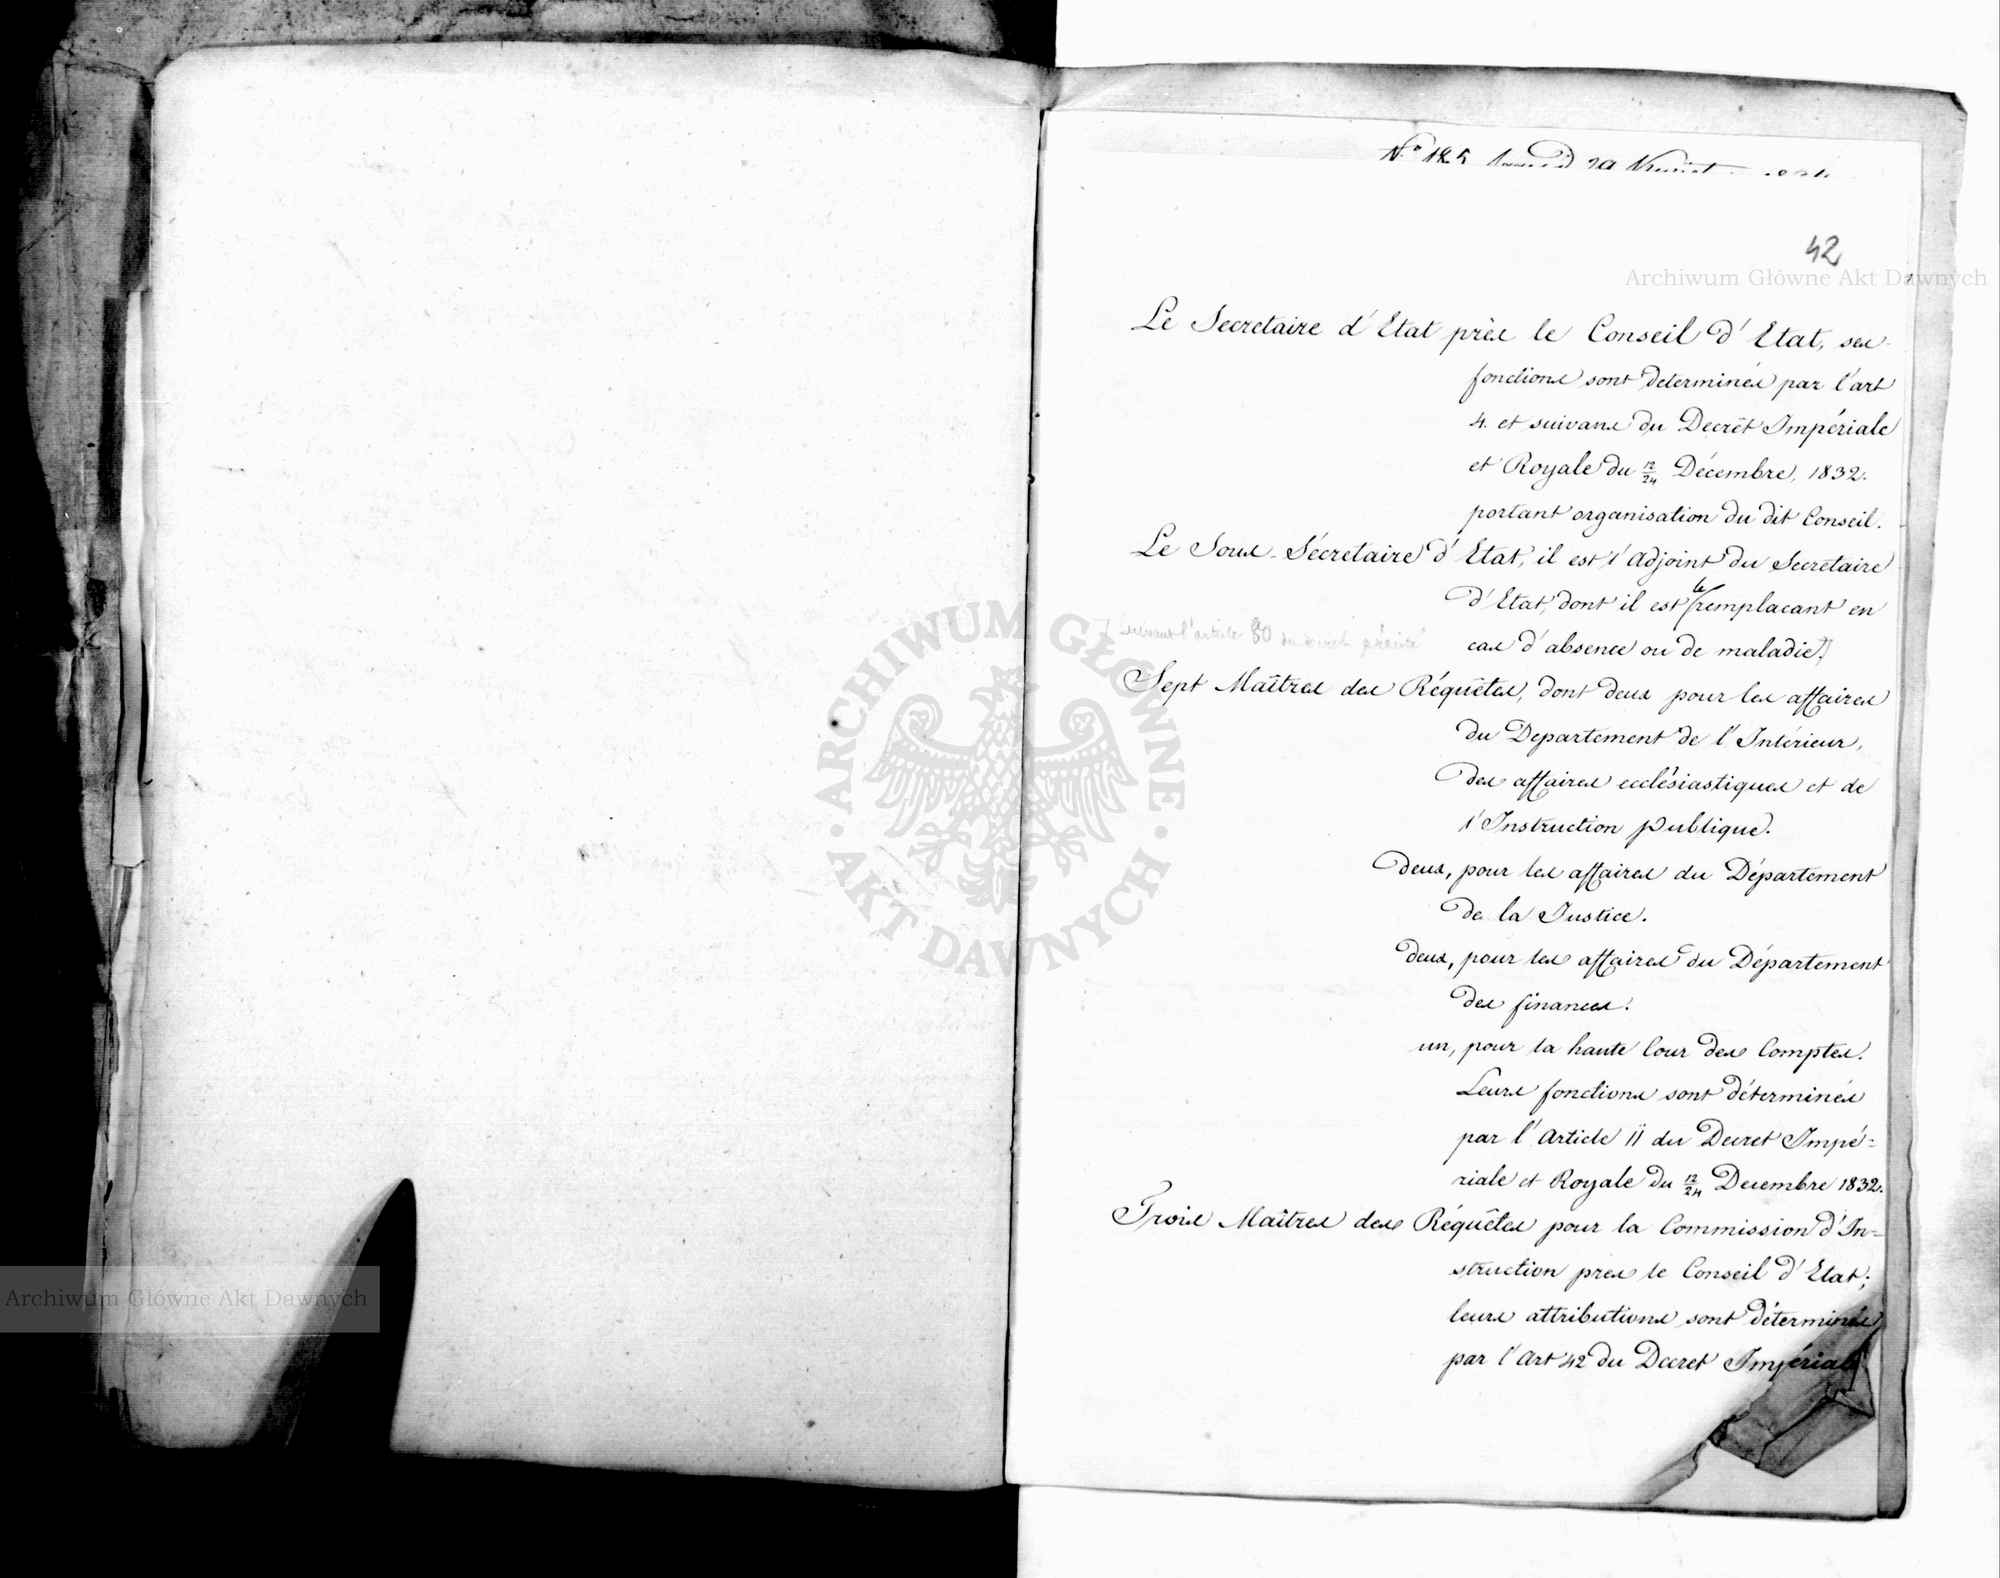 42
Le Secretaire d'Etat près le Conseil d'Etat, ses
fonctions sont determinés par l'art
4. et suivans du Decrêt Impériale
et Royale du 12/24 Décembre, 1832.
portant organisation du dit Conseil.
Le Sous-Sécretaire d'Etat, il est l'Adjoint du Secretaire
d'Etat, dont il est le remplacant en
cas d'absence ou de maladie.
suivant l'article 80 du précité
Sept Maîtres des Réquêtes, dont deux pour les affaires
du Departement de l'Intérieur,
des affaires ecclésiastiques et de
l'Instruction publique.
deux, pour les affaires du Département
de la Justice.
deux, pour les affaires du Département
des finances.
un, pour la haute Cour des Comptes.
Leurs fonctions sont déterminés
par l'Article 11 du Decret Impé=
riale et Royale du 12/24 Decembre 1832.
Trois Maîtres des Réquêtes pour la Commission d'In=
struction pres le Conseil d'Etat;
leurs attributions sont déterminés
par l'Art 42 du Decret Impériale
Archiwum Główne Akt Dawnych
Archiwum Główne Akt Dawnych
ARCHIWUM GŁÓWNE · AKT DAWNYCH ·